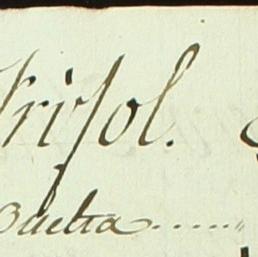 Trisol.
Buelta......